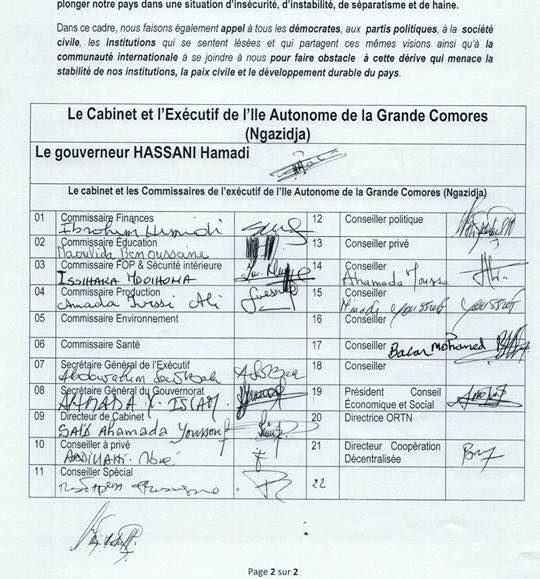 plonger notre pays dans une situation d'insécurité, d'instabilité, de séparatisme et de haine.
Dans ce cadre, nous faisons également appel à tous les démocrates, aux partis politiques, à la société
civile, les institutions qui se sentent lésées et qui partagent ces mêmes visions ainsi qu'à la
communauté internationale à se joindre à nous pour faire obstacle à cette dérive qui menace la
stabilité de nos institutions, la paix civile et le développement durable du pays.
Le Cabinet et l'Exécutif de l'Ile Autonome de la Grande Comores
(Ngazidja)
Le gouverneur HASSANI Hamadi
Le cabinet et les Commissaires de l'exécutif de l'Ile Autonome de la Grande Comores (Ngazidja)
01 Commissaire Finances
Ibrahim
12 Conseiller politique
02 Commissaire Education
Maoulida
13 Conseiller privé
03 Commissaire FOP & Sécurité intérieure
ISSIHAKA
14 Conseiller
Ahamada
04 Commissaire Production
Ali
15 Conseiller
Youssouf
05 Commissaire Environnement
16 Conseiller
06 Commissaire Santé
17 Conseiller Bacar Mohamed
07 Secrétaire Général de l'Exécutif
18 Conseiller
08 Secrétaire Général du Gouvernorat
19 Président Conseil
Économique et Social
09 Directeur de Cabinet
SAÏD Ahamada Youssouf
20 Directrice ORTN
10 Conseiller à privé
21 Directeur Coopération
Décentralisée
11 Conseiller Spécial
22
Page 2 sur 2